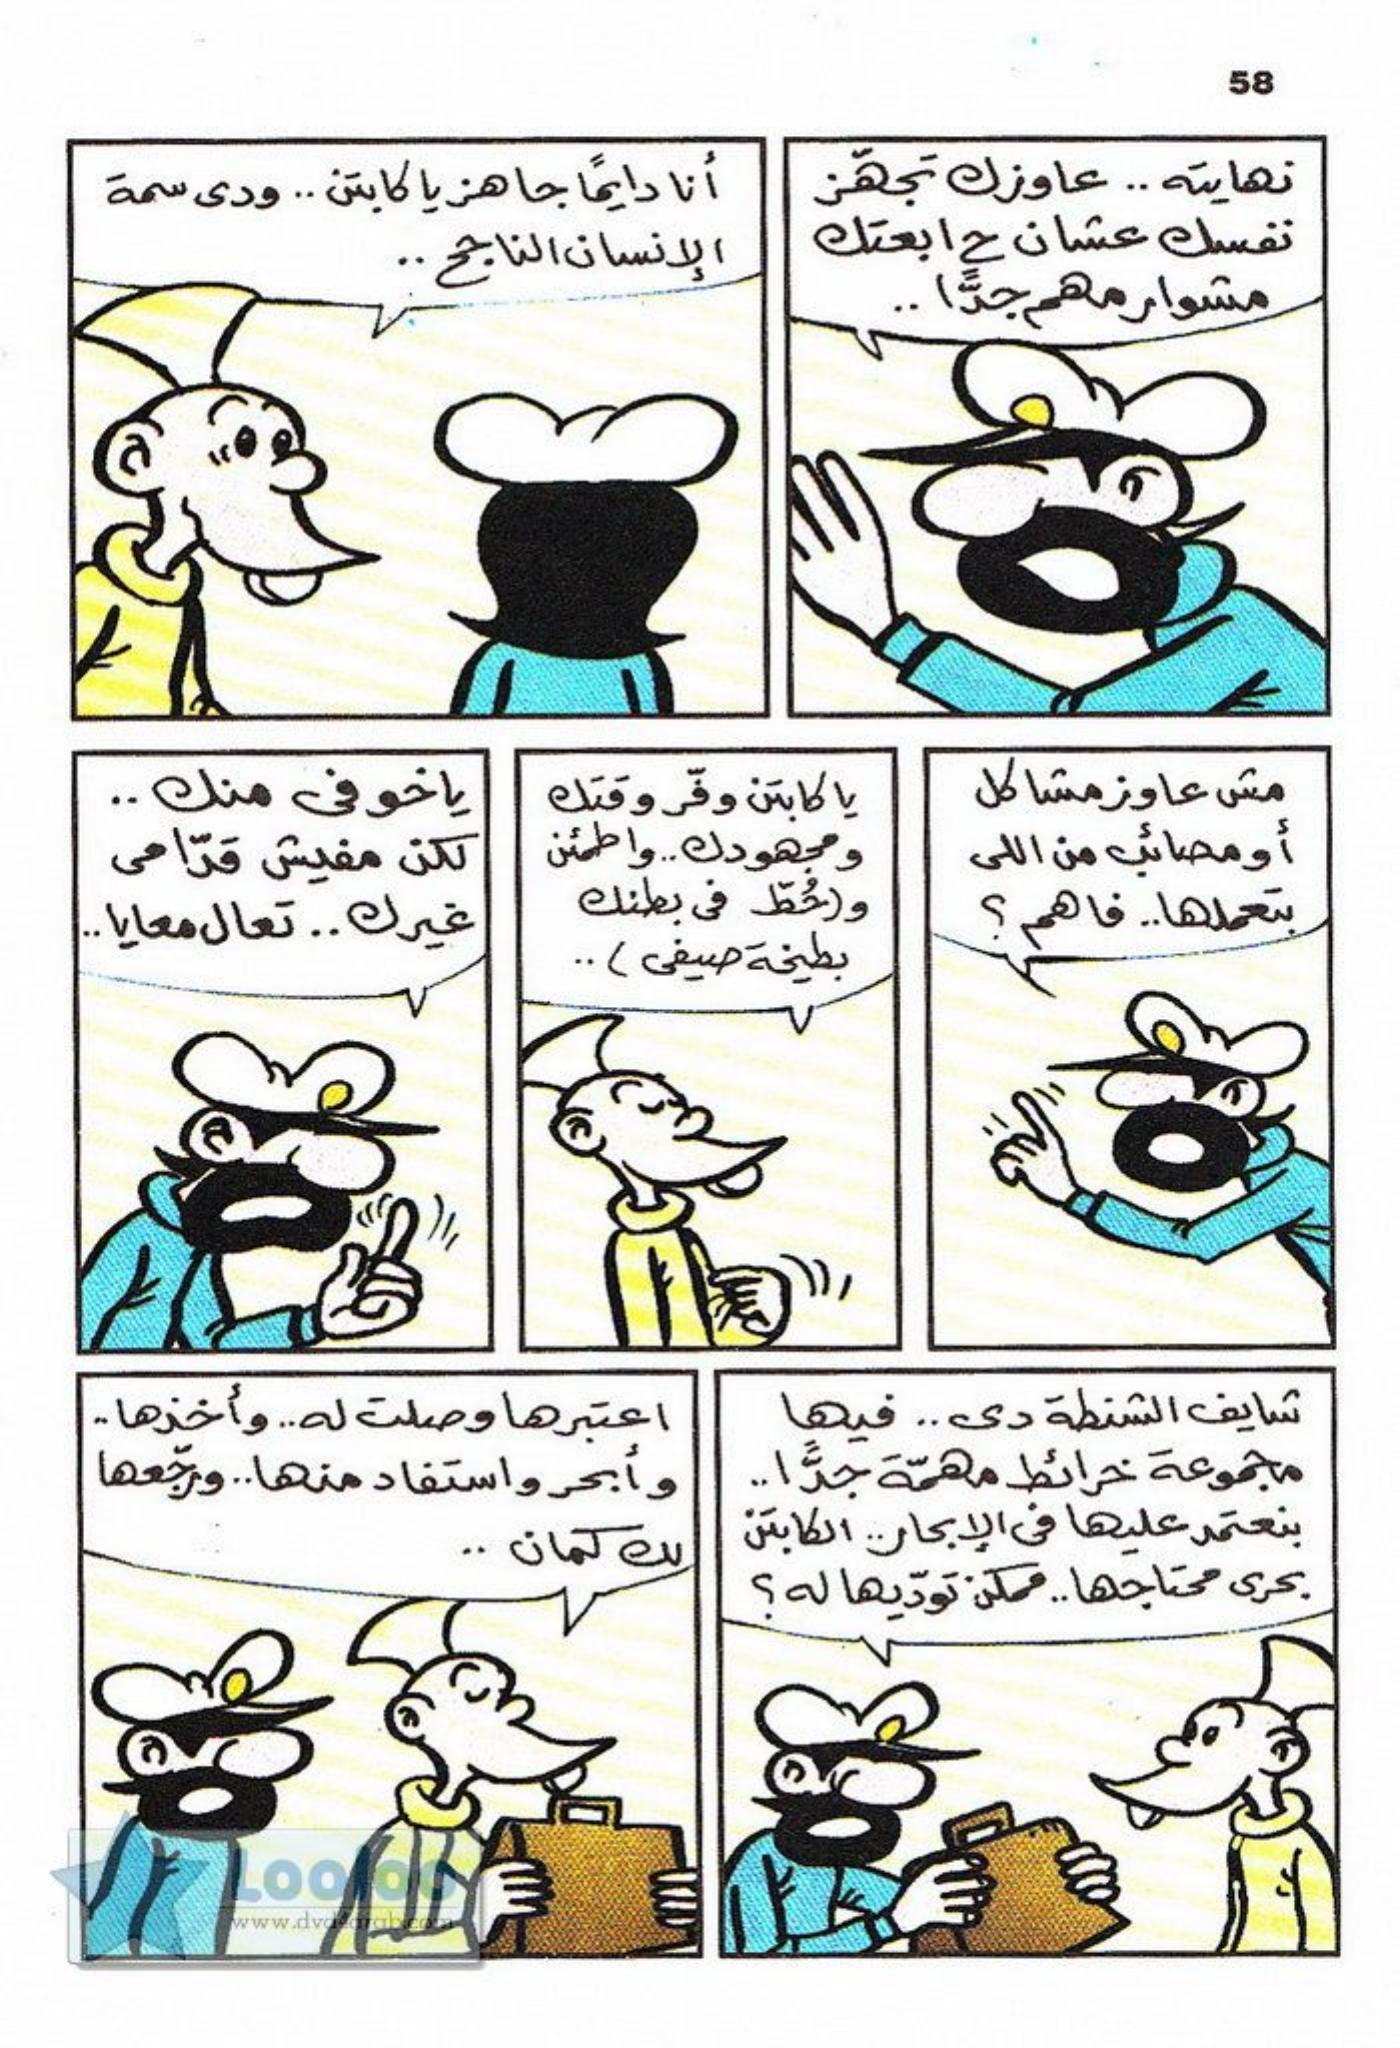 58
نهايته .. عاوزك تجهّز
نفسك عشان ح ابعتك
مشوار مهم جدًّا ..
أنا دايمًا جاهز يا كابتن .. ودى سمة
الإنسان الناجح ..
مش عاوز مشاكل
أو مصائب من اللى
بتعملها.. فاهم ؟
يا كابتن وفّر وقتك
ومجهودك .. واطمئن
و(حُطّ فى بطنك
بطيخة صيفى) ..
يا خوفى منك ..
لكن مفيش قدّامى
غيرك .. تعال معايا ..
شايف الشنطة دى .. فيها
مجموعة خرائط مهمّة جدًّا ..
بنعتمد عليها فى الإبحار .. الكابتن
بحرى محتاجها .. ممكن تودّيها له ؟
اعتبرها وصلت له .. وأخذها ..
وأبحر واستفاد منها .. ورجّعها
لك كمان ..
Looloo
www.dvd4arab.com